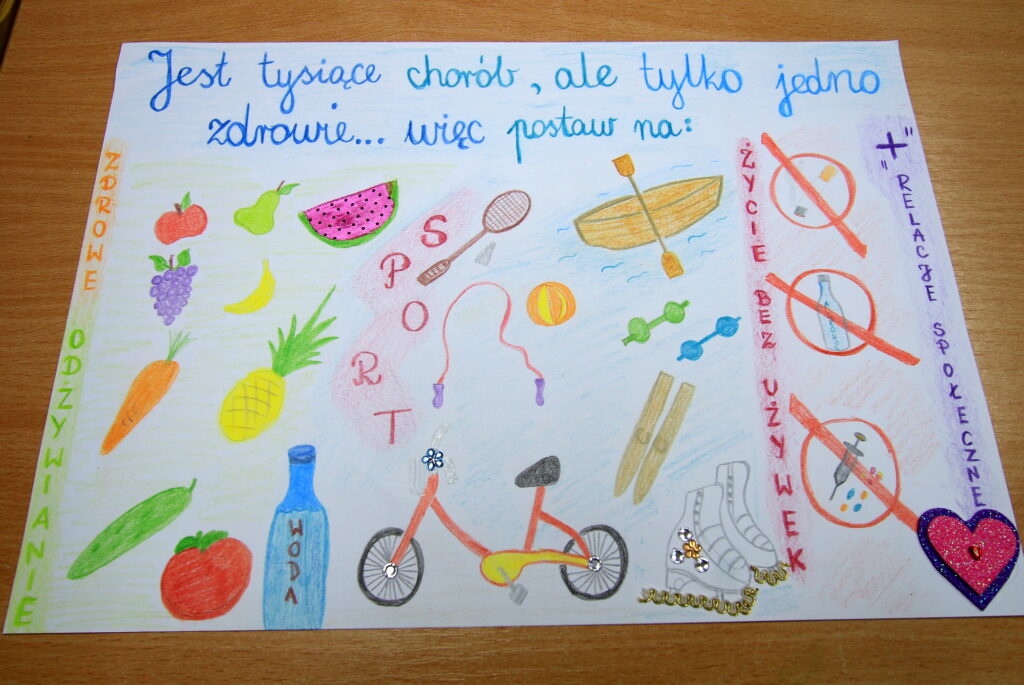 Jest tysiące chorób, ale tylko jedno
zdrowie... więc postaw na:
ZDROWE ODŻYWIANIE
SPORT
WODA
ŻYCIE BEZ UŻYWEK
"+" RELACJE SPOŁECZNE